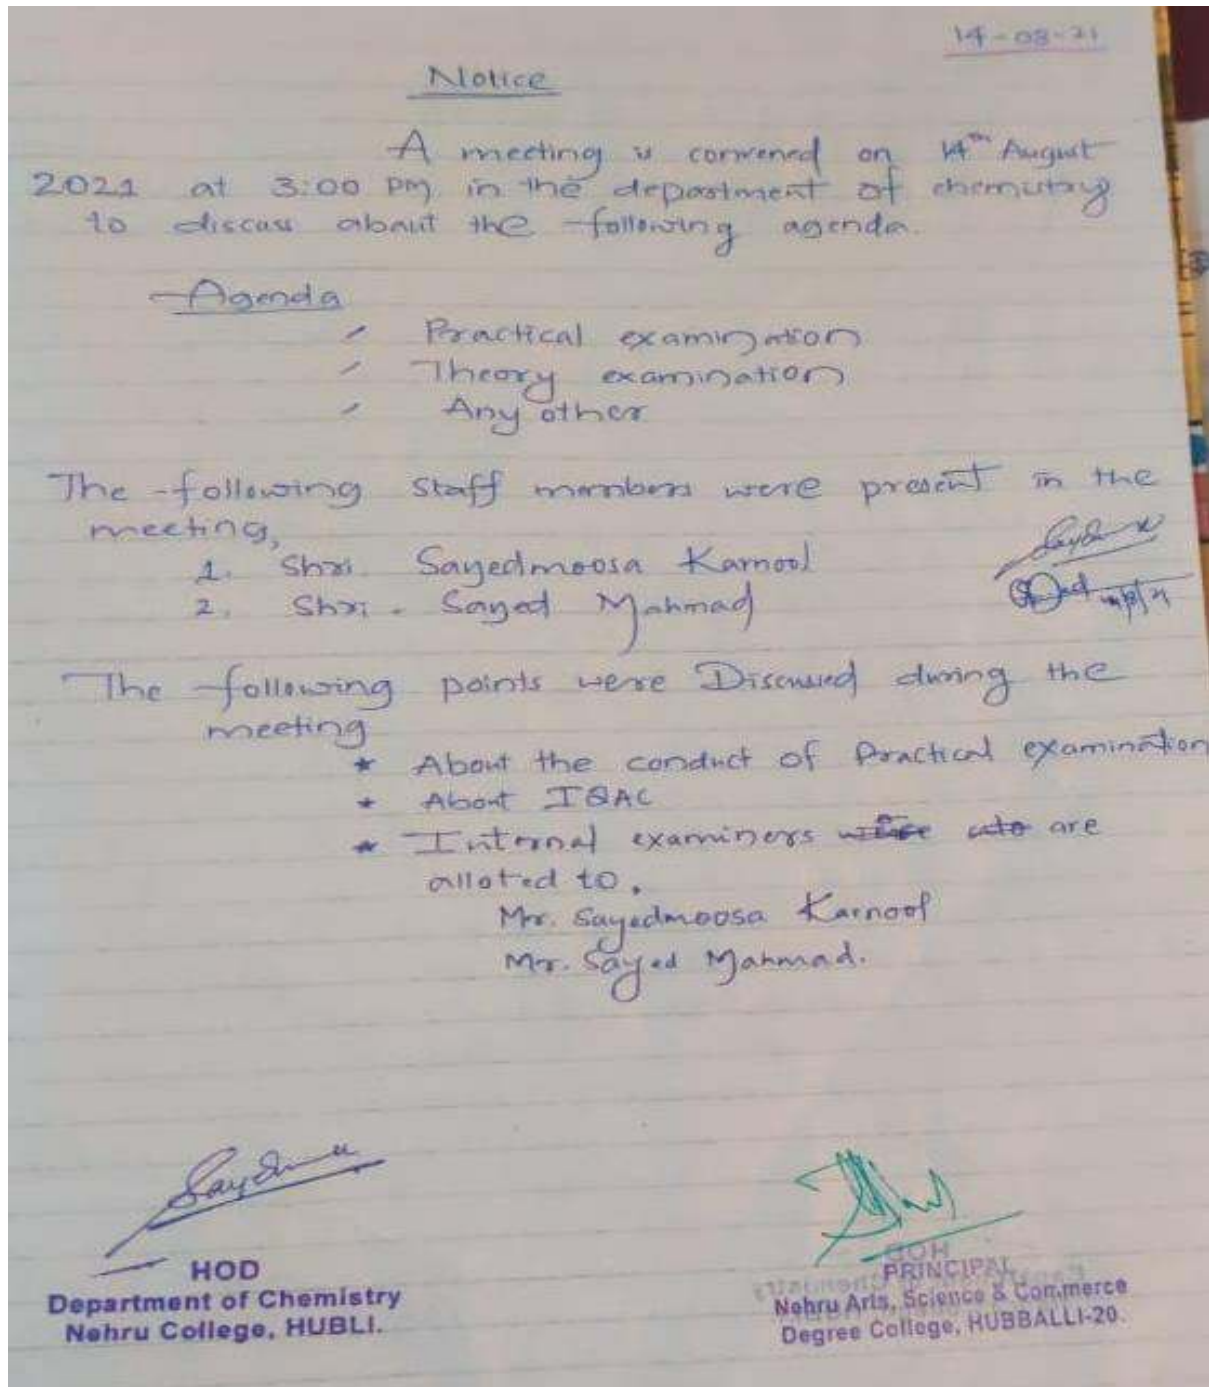 14-08-21
Notice
A meeting is convened on 14th August
2021 at 3:00 PM in the department of chemistry
to discuss about the following agenda.
Agenda
Practical examination
Theory examination
Any other
The following staff members were present in the
meeting,
1. Shri. Sayedmoosa Karnool
2. Shri. Sayed Mahmad
The following points were Discussed during the
meeting
* About the conduct of Practical examination
* About IQAC
* Internal examiners are
alloted to,
Mr. Sayedmoosa Karnool
Mr. Sayed Mahmad.
HOD
Department of Chemistry
Nehru College, HUBLI.
HOD
PRINCIPAL
Nehru Arts, Science & Commerce
Degree College, HUBBALLI-20.